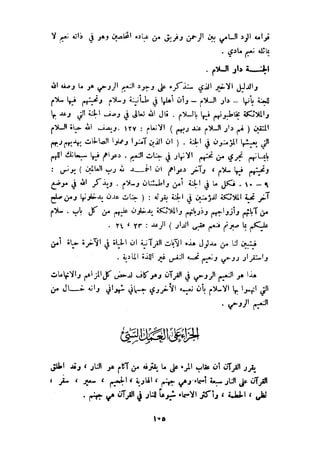 قوامها الود السامي بين الزمر وفريق من عباده المخلصين وهو في ذاته نعيم لا
يماثله نعيم مادي .
الجنة دار السلام .
والدليل الأخير الذي سنذكره على وجود النعيم الروحي هو ما وصف الله
الجنة بأنها - دار السلام - وأن أهلها في طمأنينة وسلام وتحيتهم فيها سلام
والملائكة يخاطبونهم فيها بالسلام . قال الله تعالى في وصف الجنة وما وعد بها
المتقين ( لهم دار السلام عند ربهم ) الأنعام : ١٢٧ . ويصف الله حياة السلام
التي يعيشها المؤمنون في الجنة . ( إن الذين آمنوا وعملوا الصالحات يهديهم ربهم
بإيمانهم تجري من تحتهم الأنهار في جنات النعيم . دعواهم فيها سبحانك اللهم
وتحيتهم فيها سلام ، وآخر دعواهم أن الحمد لله رب العالمين ) يونس :
٩ - ١٠ . فكل ما في الجنة أمن واطمئنان وسلام . ويذكر الله في موضع
آخر تحية الملائكة للمؤمنين في الجنة بقوله : ( جنات عدن يدخلونها ومن صلح
من آبائهم وأزواجهم وذرياتهم والملائكة يدخلون عليهم من كل باب . سلام
عليكم بما صبرتم فنعم عقبى الدار ) الرعد : ٢٣ ، ٢٤ .
فيتبين لنا من مدلول هذه الآيات القرآنية أن الحياة في الآخرة حياة أمن
واستقرار روحي ونعيم تحسه النفس غير اللذة المادية .
هذا هو النعيم الروحي في القرآن وهو كاف لدحض كل المزاعم والاتهامات
التي اتهموا بها الإسلام بأن نعيمه الأخروي جسماني شهواني وأنه خال من
النعيم الروحي .
الجزاء على العمل السيئ
يقرر القرآن أن عقاب المرء على ما يقترفه من آثام هو النار ، وقد أطلق
القرآن على النار سبعة أسماء هي جهنم ، الهاوية ، الجحيم ، سعير ، سقر ،
لظى ، الحطمة ، وأكثر الأسماء شيوعاً للنار في القرآن هي جهنم .
١٠٥